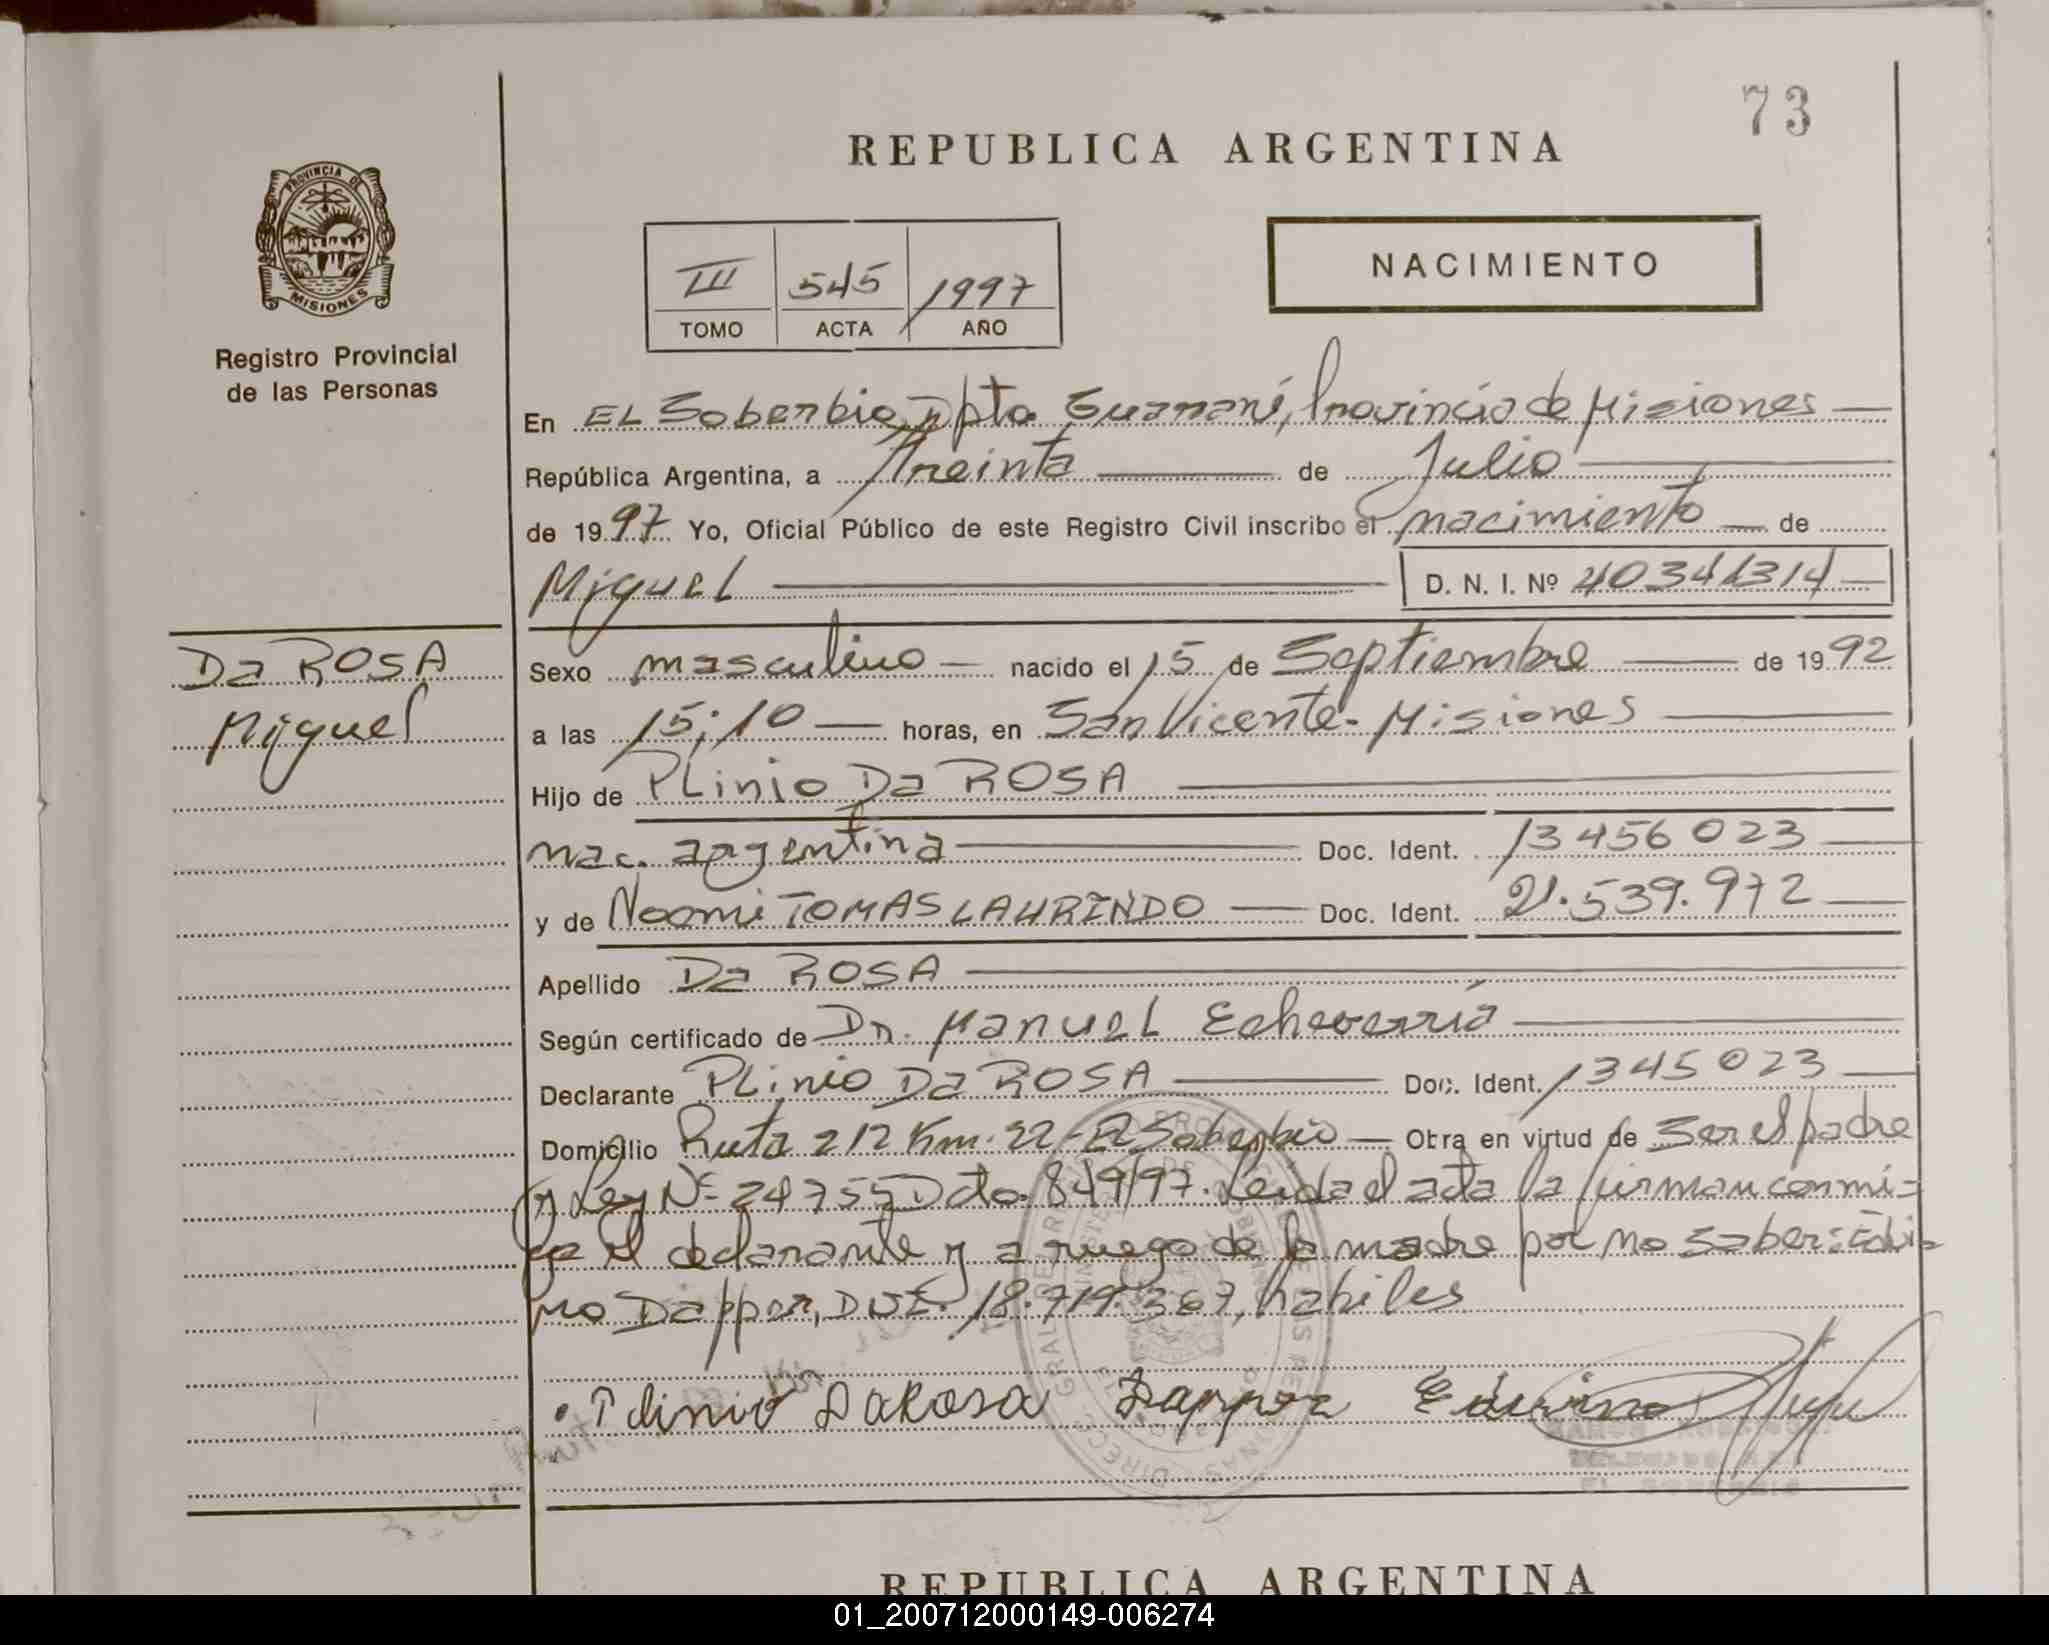 73
REPUBLICA ARGENTINA
PROVINCIA DE
MISIONES
Registro Provincial
de las Personas
III 545 1997
TOMO ACTA AÑO
NACIMIENTO
En EL Soberbio, Dpto Guaraní, Provincia de Misiones
República Argentina, a Treinta de Julio
de 1997 Yo, Oficial Público de este Registro Civil inscribo el nacimiento de
Miguel D. N. I. Nº 40341314
Da ROSA
Miguel
Sexo masculino nacido el 15 de Septiembre de 1992
a las 15:10 horas, en San Vicente - Misiones
Hijo de PLinio Da ROSA
nac. argentina Doc. Ident. 13456023
y de Noemi TOMAS LAURINDO Doc. Ident. 21.539.972
Apellido Da ROSA
Según certificado de Dr. Manuel Echeverría
Declarante PLinio Da ROSA Doc. Ident. 1345023
Domicilio Ruta 212 Km. 22 - El Soberbio Obra en virtud de ser el padre
y Ley Nº 24755 Dcto. 849/97. Leída el acta la firman conmi-
go el declarante y a ruego de la madre por no saber: Edvi-
no Dapper, DNI. 18.719.367, habiles
Plinio DaRosa Dapper Edvino
REPUBLICA ARGENTINA
01_200712000149-006274